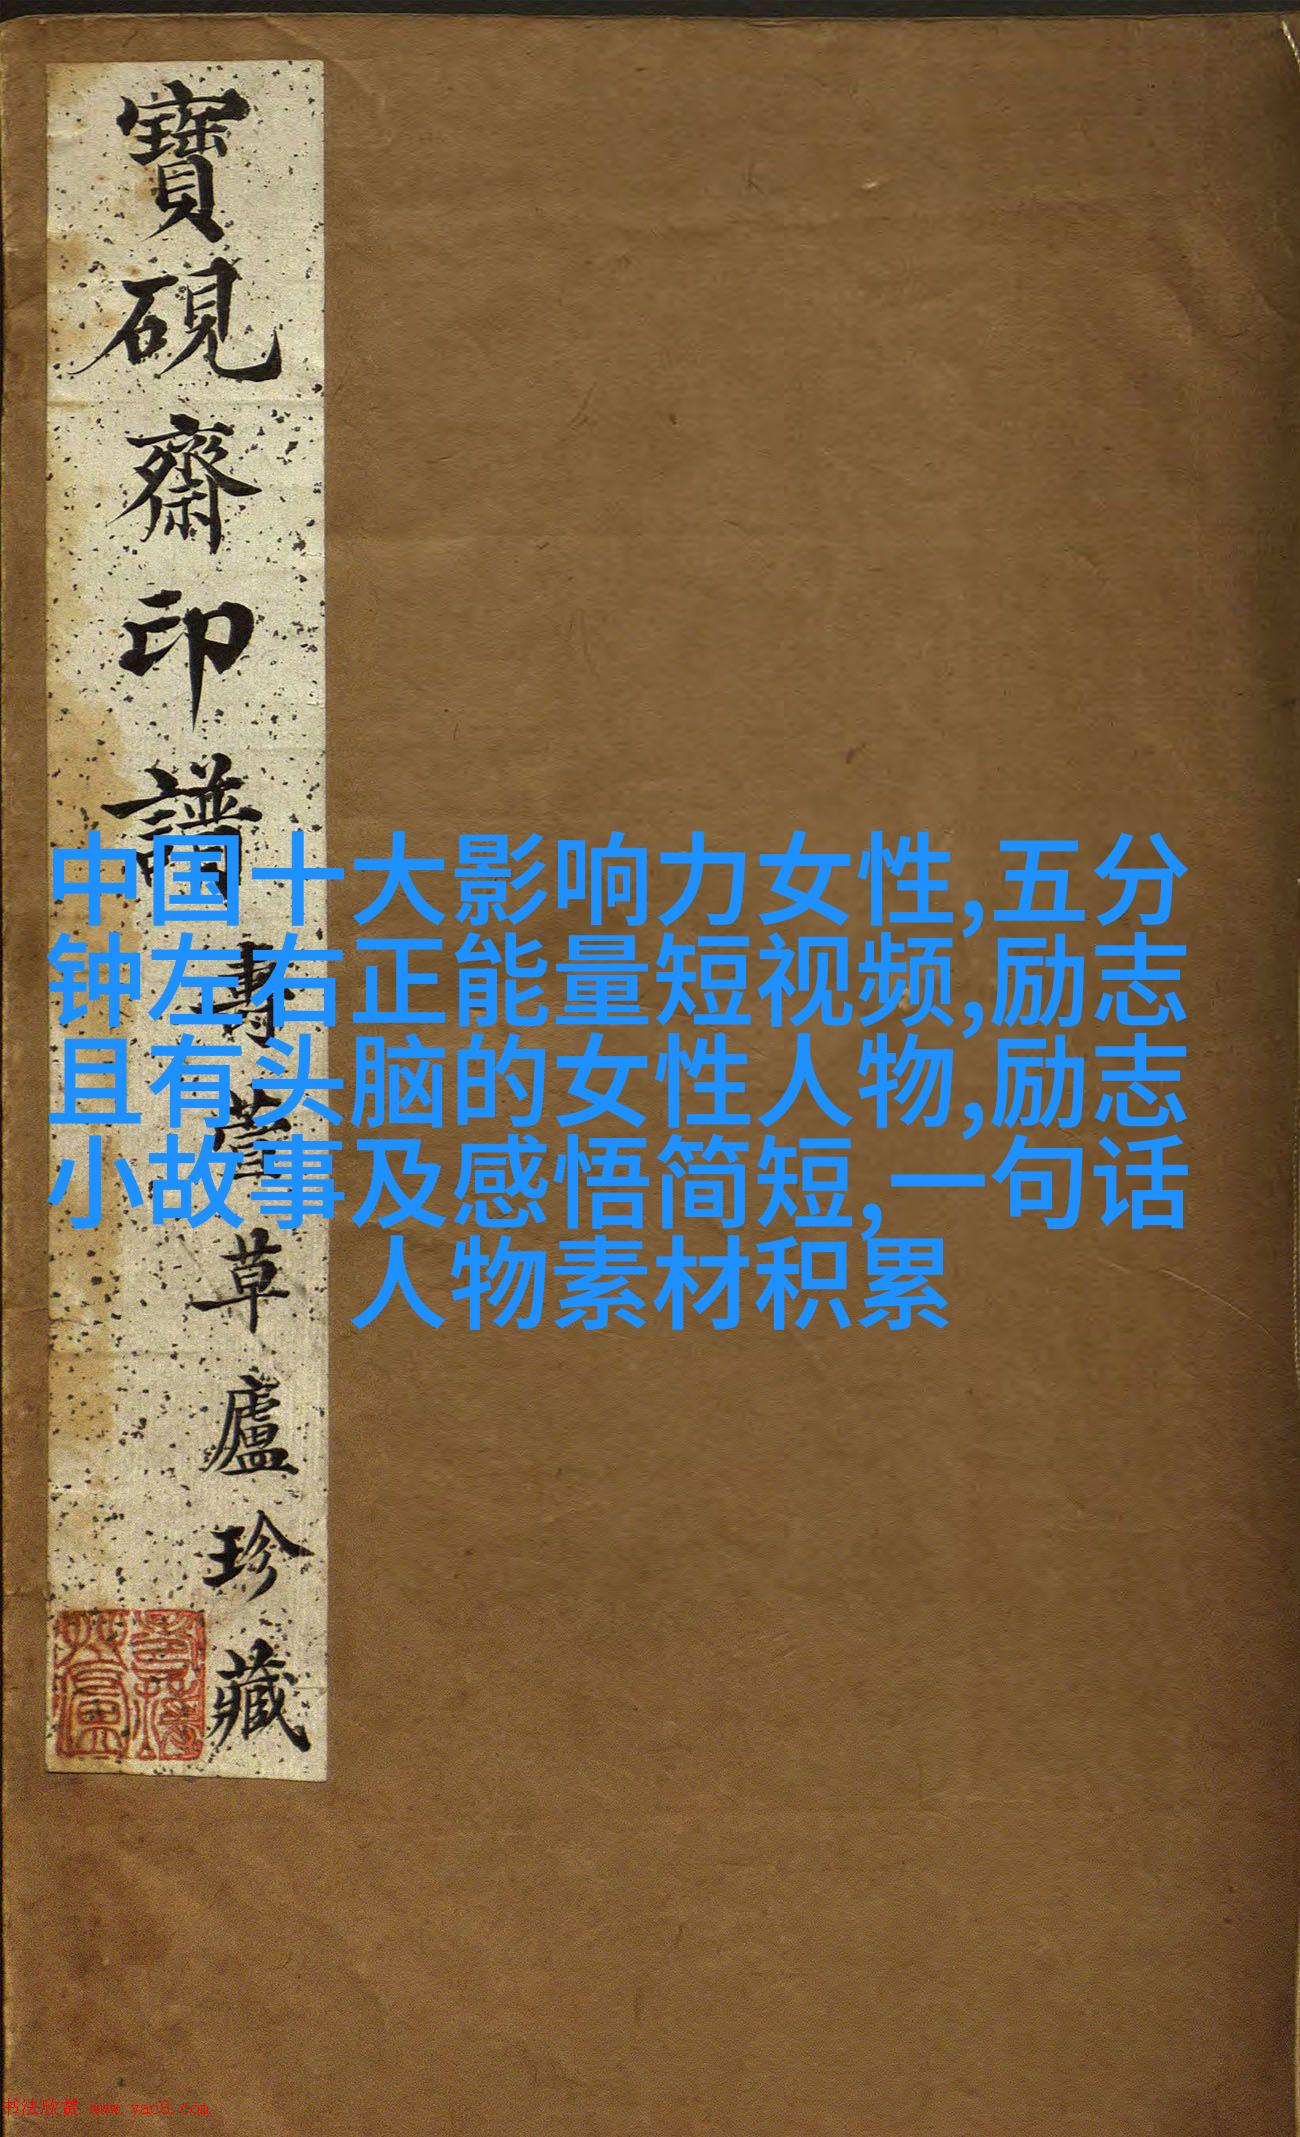 寶硯齋印譜
壽萱草廬珍藏
中国十大影响力女性,五分
钟左右正能量短视频,励志
且有头脑的女性人物,励志
小故事及感悟简短,一句话
人物素材积累
书法欣赏 www.yac8.com